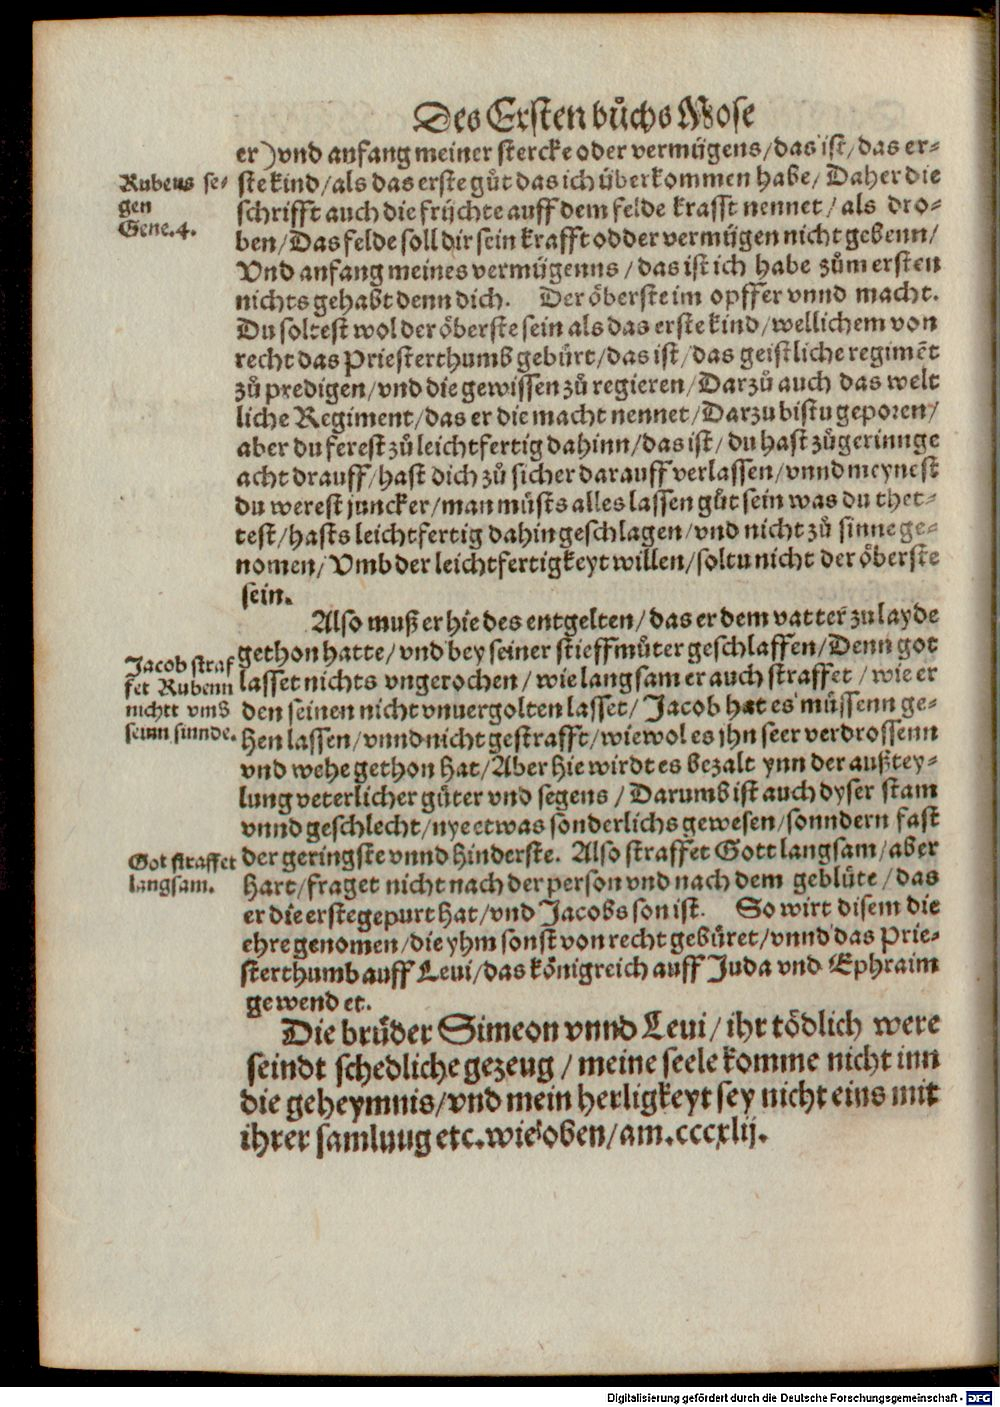 Des Ersten buͤchs Mose
er) vnd anfang meiner stercke oder vermuͤgens/das ist/das er-
Rubens se-
gen
Gene.4.
ste kind/als das erste guͤt das ich uͤberkommen habe/ Daher die
schrifft auch die fruͤchte auff dem felde krafft nennet/ als dro-
ben/Das felde soll dir sein krafft odder vermuͤgen nicht gebenn/
Vnd anfang meines vermuͤgenns/das ist ich habe zuͦm ersten
nichts gehabt denn dich. Der oͤberste im opffer vnnd macht.
Du soltest wol der oͤberste sein als das erste kind/wellichem von
recht das Priesterthumb gebuͤrt/das ist/das geistliche regimēt
zuͦ predigen/vnd die gewissen zuͦ regieren/Darzuͦ auch das welt
liche Regiment/das er die macht nennet/Darzu bistu geporen/
aber du ferest zuͦ leichtfertig dahinn/das ist/du hast zuͦ gerinnge
acht drauff/hast dich zuͦ sicher darauff verlassen/vnnd meynest
du werest juncker/man muͤsts alles lassen guͦt sein was du thet-
test/hasts leichtfertig dahin geschlagen/vnd nicht zuͦ sinne ge-
nomen/Vmb der leichtfertigkeyt willen/soltu nicht der oͤberste
sein.
Also muß er hie des entgelten/das er dem vatter zu layde
gethon hatte/vnd bey seiner stieffmuͦter geschlaffen/Denn got
Jacob straf
fet Rubenn
nichtt vmb
seinn sunnde.
lasset nichts vngerochen/wie langsam er auch straffet/wie er
den seinen nicht vnuergolten lasset/Jacob hat es muͤssenn ge-
hen lassen/vnnd nicht gestrafft/wiewol es jhn seer verdrossenn
vnd wehe gethon hat/Aber hie wirdt es bezalt ynn der außtey-
lung veterlicher guͤter vnd segens/Darumb ist auch dyser stam
vnnd geschlecht/nye etwas sonderlichs gewesen/sonndern fast
Got straffet
langsam.
der geringste vnnd hinderste. Also straffet Gott langsam/aber
hart/fraget nicht nach der person vnd nach dem gebluͤte/das
er die erste gepurt hat/vnd Jacobs son ist. So wirt disem die
ehre genomen/die yhm sonst von recht gebuͤret/vnnd das Prie-
sterthumb auff Leui/das koͤnigreich auff Juda vnd Ephraim
gewendet.
Die bruͤder Simeon vnnd Leui/ihr toͤdlich were
seindt schedliche gezeug/meine seele komme nicht inn
die geheymnis/vnd mein herligkeyt sey nicht eins mit
ihrer samlung etc. wie oben/am.cccxlij.
Digitalisierung gefördert durch die Deutsche Forschungsgemeinschaft - DFG